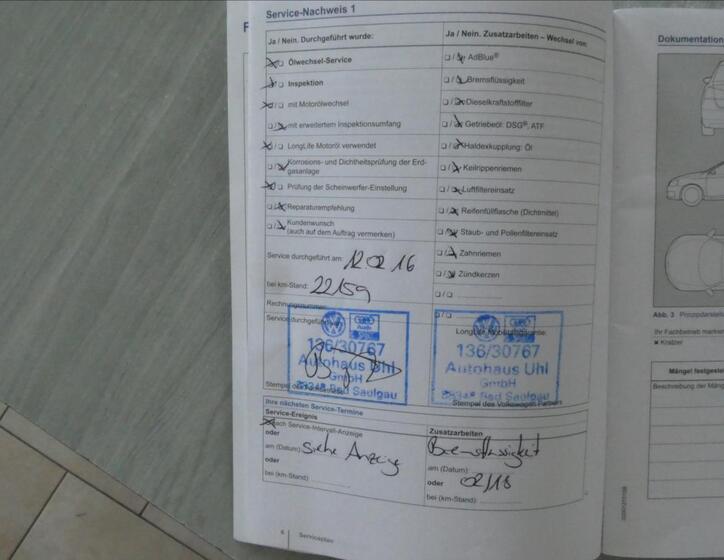 Service-Nachweis 1
Ja / Nein. Durchgeführt wurde:
Ja / Nein. Zusatzarbeiten – Wechsel von:
Ölwechsel-Service
AdBlue®
Inspektion
Bremsflüssigkeit
mit Motorölwechsel
Dieselkraftstofffilter
mit erweitertem Inspektionsumfang
Getriebeöl: DSG®, ATF
LongLife Motoröl verwendet
Haldexkupplung: Öl
Korrosions- und Dichtheitsprüfung der Erd-
gasanlage
Keilrippenriemen
Prüfung der Scheinwerfer-Einstellung
Luftfiltereinsatz
Reparaturempfehlung
Reifenfüllflasche (Dichtmittel)
Kundenwunsch
(auch auf dem Auftrag vermerken)
Staub- und Pollenfiltereinsatz
Zahnriemen
Zündkerzen
Service durchgeführt am: 12 02 16
bei km-Stand: 22159
Rechnungsnummer:
Service durchgeführt
LongLife Mobilitätsgarantie:
Audi
136/30767
Autohaus Uhl
GmbH
Bad Saulgau
136/30767
Autohaus Uhl
GmbH
Bad Saulgau
Stempel des
Stempel des Volkswagen Partners
Ihre nächsten Service-Termine
Service-Ereignis
nach Service-Intervall-Anzeige
oder
am (Datum): siehe Anzeige
oder
bei (km-Stand):
Zusatzarbeiten
Bremsflüssigkeit
am (Datum):
oder 02/18
bei (km-Stand):
6 Serviceplan
Dokumentation
Abb. 3
Ihr Fachbetrieb
Kratzer
Mängel
Beschreibung der